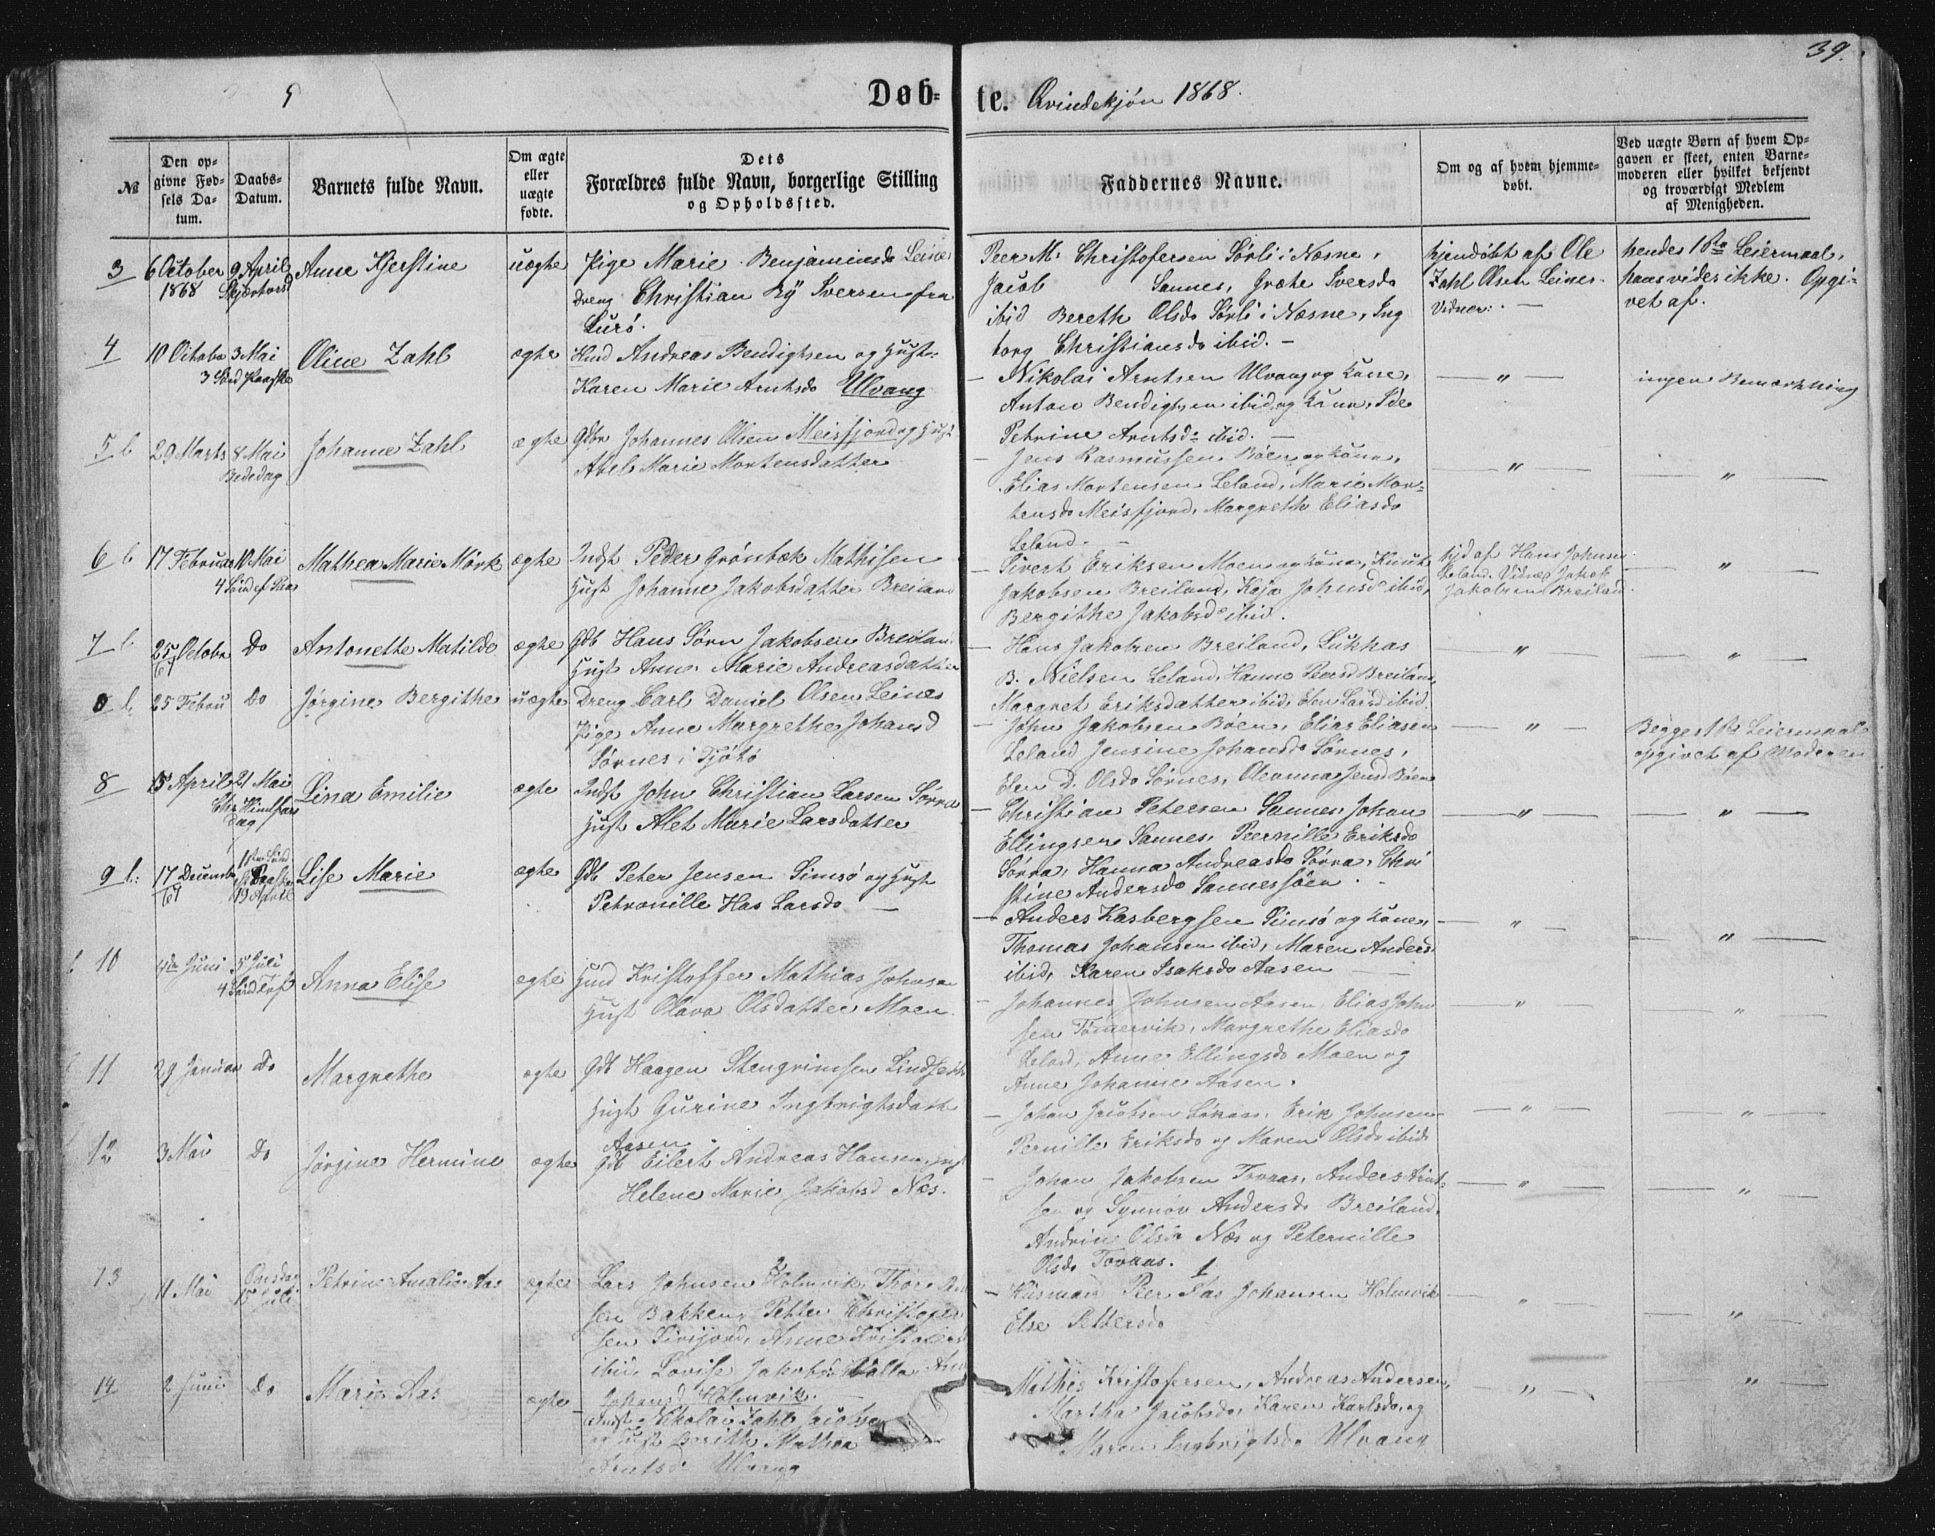 39.
5
Døb-te. Qvindekjøn 1868.
№
Den opgivne Fødsels Datum.
Daabs-Datum.
Barnets fulde Navn.
Om ægte eller uægte fødte.
Dets Forældres fulde Navn, borgerlige Stilling og Opholdssted.
Faddernes Navne.
Om og af hvem hjemmedøbt.
Ved uægte Børn af hvem Opgaven er skeet, enten Barnemoderen eller hvilket bekjendt og troværdigt Medlem af Menigheden.
3 6 October 1868 9 April Skjærtorsd Anne Kjerstine uægte
Pige Marie Benjaminsd Leines
dreng Christian Ry Iversen fra
Lurø.
Peer M. Christofersen Sørli i Næsne,
Jacob Sannes, Grethe Iversd
ibid Bereth Olsd Sørli i Næsne, Ing
borg Christiansd ibid. —
hjemdøbt af Ole
Zahl Olsen Leines.
Vidner: —
hendes 1ste Leiermaal,
hans vides ikke. Opgi-
vet af.
4 10 Octobe 3 Mai 3 Sød Paaske Oline Zahl ægte
Huusd Andreas Bendigtsen og Hust:
Karen Marie Arntsd Ulvang
— Nikolai Arntsen Ulvang og Kone,
Anton Bendigtsen ibid og Kone, Ide
Petrine Arntsd ibid. —
— " —
ingen Bemærkning
5 b 29 Marts 8 Mai Bededag Johanne Zahl ægte
Gdbr Johannes Olsen Meisfjord og Hust
Abel Marie Mortensdatter
— Jens Rasmussen Bøen og Kone,
Elias Mortensen Leland, Marie Mor-
tensd Meisfjord, Margreth Eliasd
Leland. —
— " —
— " —
6 b 17 Februar 10 Mai 4 Sønd ef Paas Mathea Marie Mørk ægte
Indst Peder Grønbæk Mathisen
Hust Johanne Jakobsdatter Breiland
— Sivert Eriksen Moen og Kone, Knut
Jakobsen Breiland, Kaja Johnsd ibid,
Bergithe Jakobsd ibid.
hjd af Hans Johnsen
Leland. Vidner Jakob
Jakobsen Breiland.
— " —
7 b. 25 Octobe 67 Do Antonette Matilde ægte
Gdb Hans Sørn Jakobsen Breilan
Hust Anne Marie Andreasdatter
Hans Jakobsen Breiland, Lukkas
B. Nielsen Leland, Hanna Peersd Breiland
Margret Eriksdatter ibid, Elen Larsd ibid.
— " —
— " —
b. 25 Febru Do Jørgine Bergithe uægte
Dreng Carl Daniel Olsen Leines
Pige Anne Margrethe Johansd
Sørnes i Tjøtø
— John Jakobsen Bøen, Elias Eliasen
Leland Jensine Johansd Sørnes,
Elen D. Olsd Sørnes, Oleanna Jensd Bøen
— " —
Begges 1ste Leiermaal
opgivet af Moderen
8 15 April 21 Mai Chr Himlfarts dag Lina Emilie ægte
Indst John Christian Larsen Sørra
Hust Alet Marie Larsdatter
— Christian Petersen Sannes, Johan
Ellingsen Sannes, Peernille Eriksd
Sørra, Hanna Andreasd Sørra, Chri
stine Andersd Sannessøen.
— " —
— " —
9 b: 17 Decembr /67 13 April Lise Marie ægte
Gdb Peter Jensen Simsø og Hust
Petronille Has Larsd —
— Anders Kasbergsen Simsø og Kone,
Thomas Johansen ibid, Maren Andersd
ibid, Karen Isaksd Aasen —
— " —
— " —
10 4de Juni 5 Juli 4 Sønd Tref Anna Elise ægte
Huusd Kristoffer Mathias Johnsen
Hust Olava Olsdatter Moen.
— Johannes Johnsen Aasen Elias John
sen Tømervik, Margrethe Eliasd
Leland, Anne Ellingsd Moen og
Anne Johanne Aasen.
— " —
"
11 29 Januar Do Margrethe ægte
Gdb Haagen Stengrimsen Lindseth
Hust Gurine Ingbrigtsdatt
Aasen
— Johan Jacobsen Løkaas, Erik Johnsen
Pernille Eriksd og Maren Olsd ibid
— " —
"
12 3 Mai Do Jørgine Hermine ægte
Gdb Eilert Andreas Hansen, Hust
Helene Marie Jakobsd Næs.
— Johan Jakobsen Tovaas, Anders Arnt-
sen og Synnøv Andersd Breiland,
Andrin Olsd Næs og Peternille
Olsd Tovaas.
— " —
— " —
13 11 Mai Onsdag 15 Juli Petrine Amalie Aas ægte
Lars Johnsen Holmvik, Thor
sen Bakken, Petter Christofer
sen Anne
ibid, Lovise Jakobsd
Johansd Holmvik. —
— Husmand Peer Fas Johansen Holmvik
Else Pettersd
— " —
— " —
14 2 Juni Do Marie Aas ægte
Indst Nikolai Zahl Jacobsen
og Hust Berith Mathea
Arntsd Ulvang
Mathis Kristofersen, Andreas Andersen,
Martha Jacobsd, Karen Karlsd, og
Maren Ingbrigtsd Ulvang
— " —
"